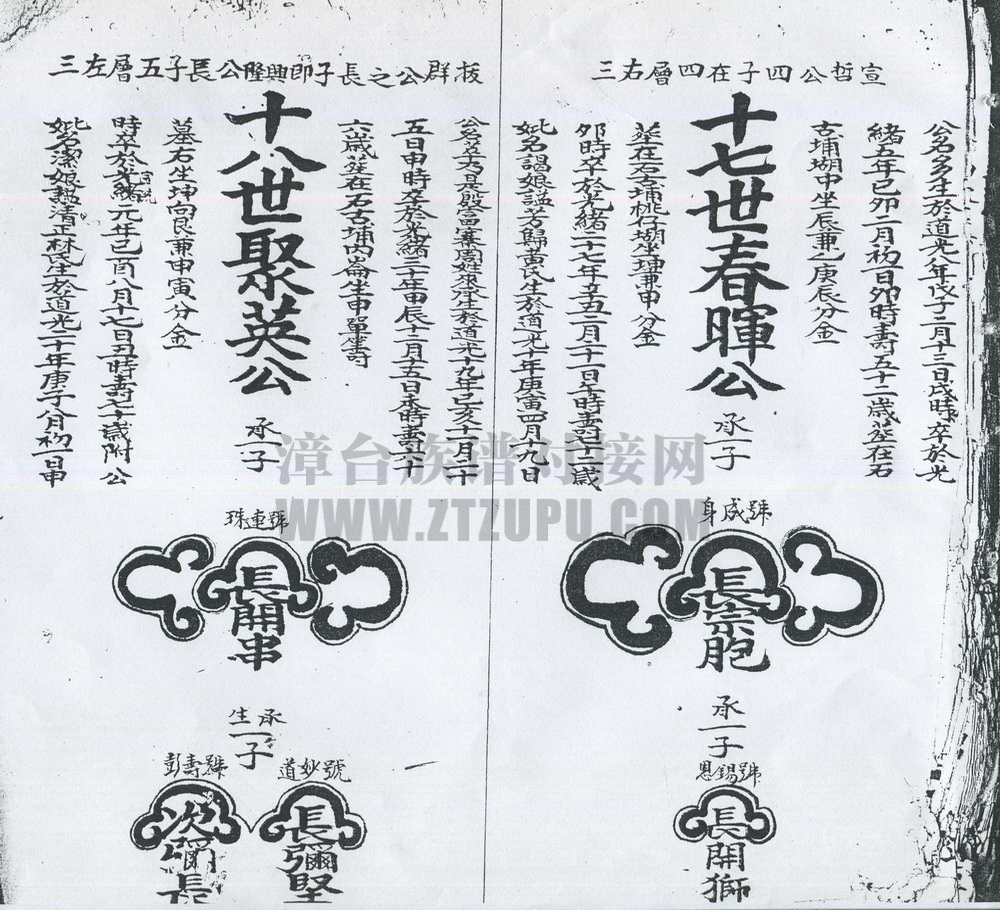 宣哲公四子在四層右三
公名多多生於道光八年戊子二月十三日戌時卒於光
緒五年已卯二月初一日卯時壽五十二歲莚在石
古埔塘中坐辰兼乙庚辰分金
十七世春暉公
承一子
莚在石古埔桃仔塘坐坤兼申分金
卯時卒於光緒二十七年辛丑二月二十日午時壽七十二歲
妣名謁娘謚芳歸黃氏生於道光十年庚寅四月十九日
號成身
長宗胞
承一子
號錫恩
長開獅
拔群公之長子即興隆公長子五層左三
公名
是殷富寨周姓來承生於道光十九年已亥十一月二十
五日申時卒於光緒三十年甲辰十二月十五日未時壽六十
六歲莚在石古埔內崙坐申單壙壽
十八世聚英公
承一子
墓右坐坤向艮兼申寅分金
時卒於
元年已酉八月十七日丑時壽七十歲附公
妣名潔娘謚清正林氏生於道光二十年庚子八月初一日申
號連珠
長開串
承一子
生
號妙道
長彌堅
號壽彭
次彌長
漳台族谱对接网
WWW.ZTZUPU.COM